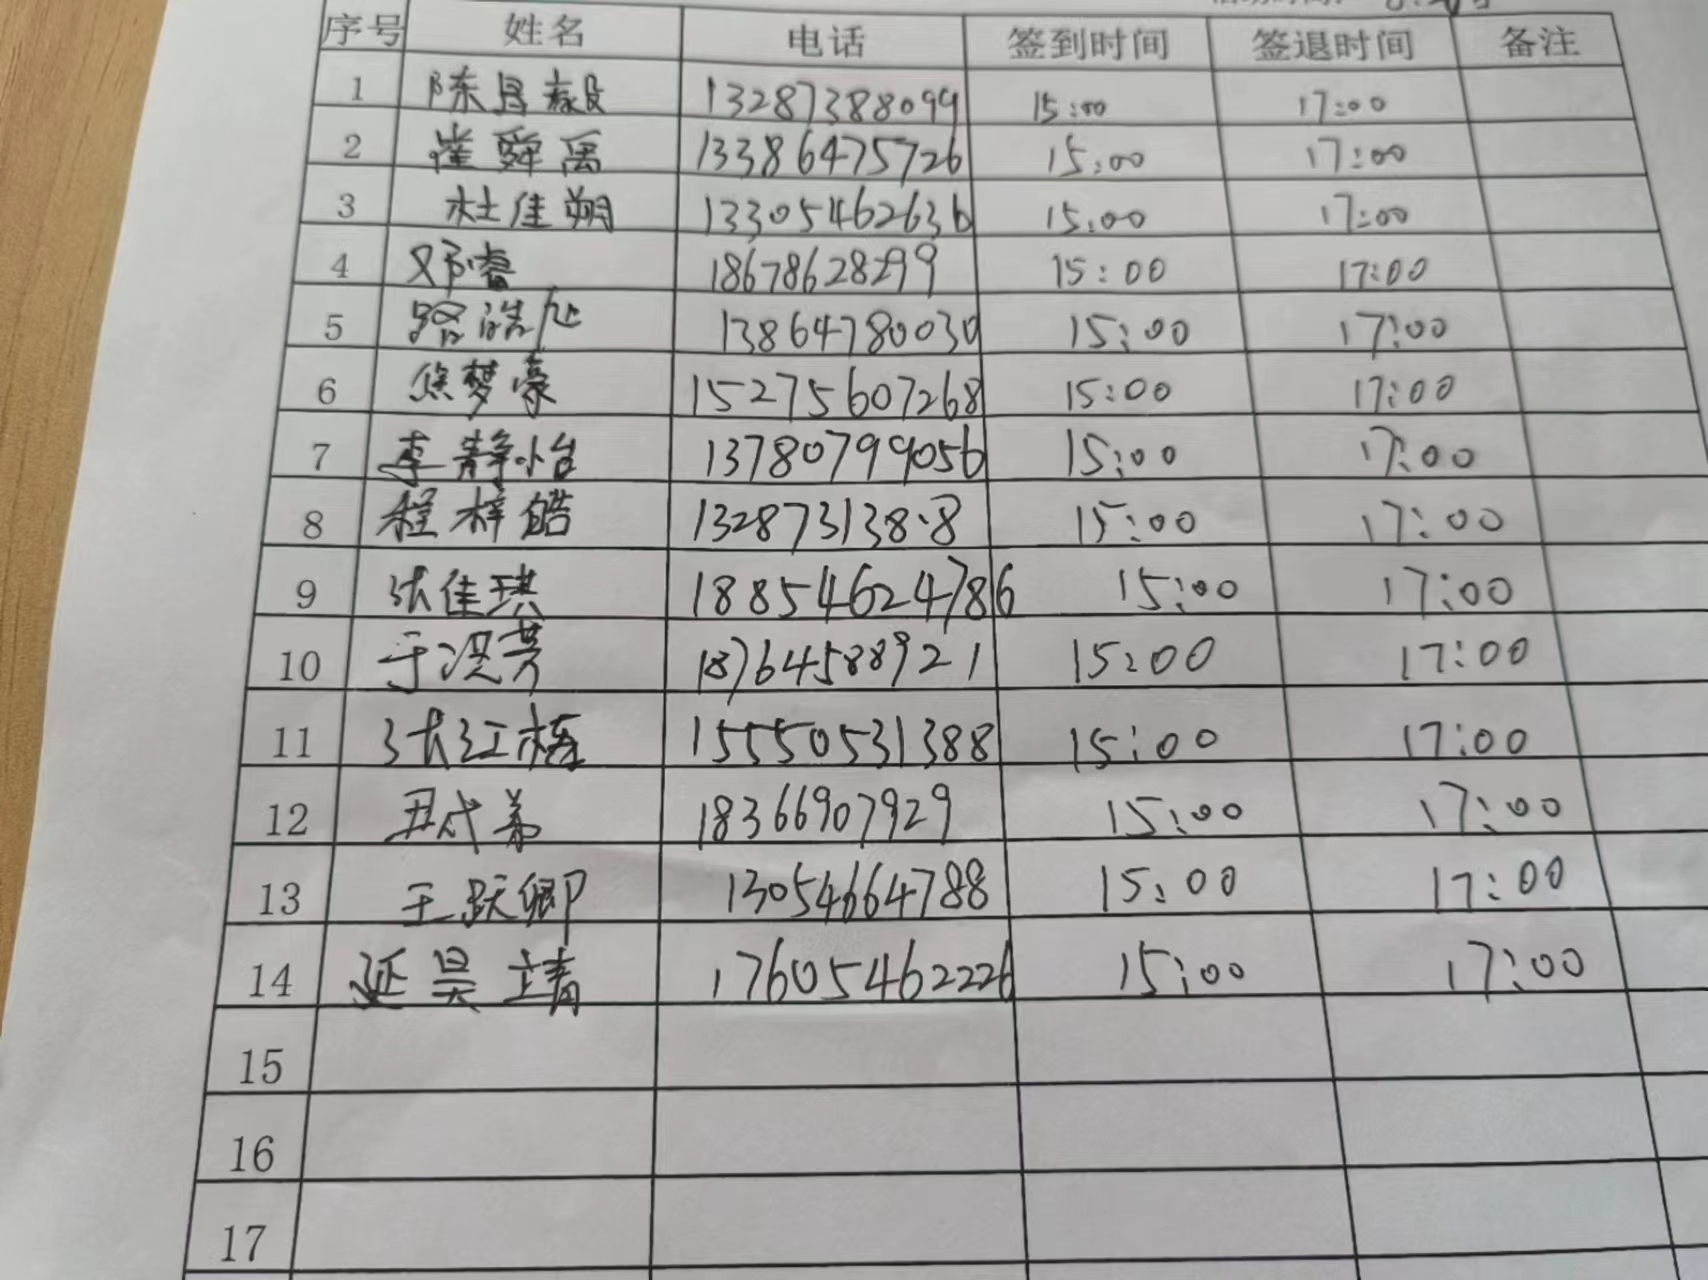 序号 姓名 电话 签到时间 签退时间 备注
1 陈昌毅 13287388099 15:00 17:00
2 崔舜禹 13386475726 15:00 17:00
3 杜佳翔 13305462636 15:00 17:00
4 邓睿 18678628299 15:00 17:00
5 路浩 13864780030 15:00 17:00
6 焦梦豪 15275607268 15:00 17:00
7 李静怡 13780799056 15:00 17:00
8 程梓皓 132873138·8 15:00 17:00
9 张佳琪 18854624786 15:00 17:00
10 于洪芳 18764588921 15:00 17:00
11 张红梅 15550531388 15:00 17:00
12 18366907929 15:00 17:00
13 王跃卿 13054664788 15:00 17:00
14 延昊靖 17605462226 15:00 17:00
15
16
17